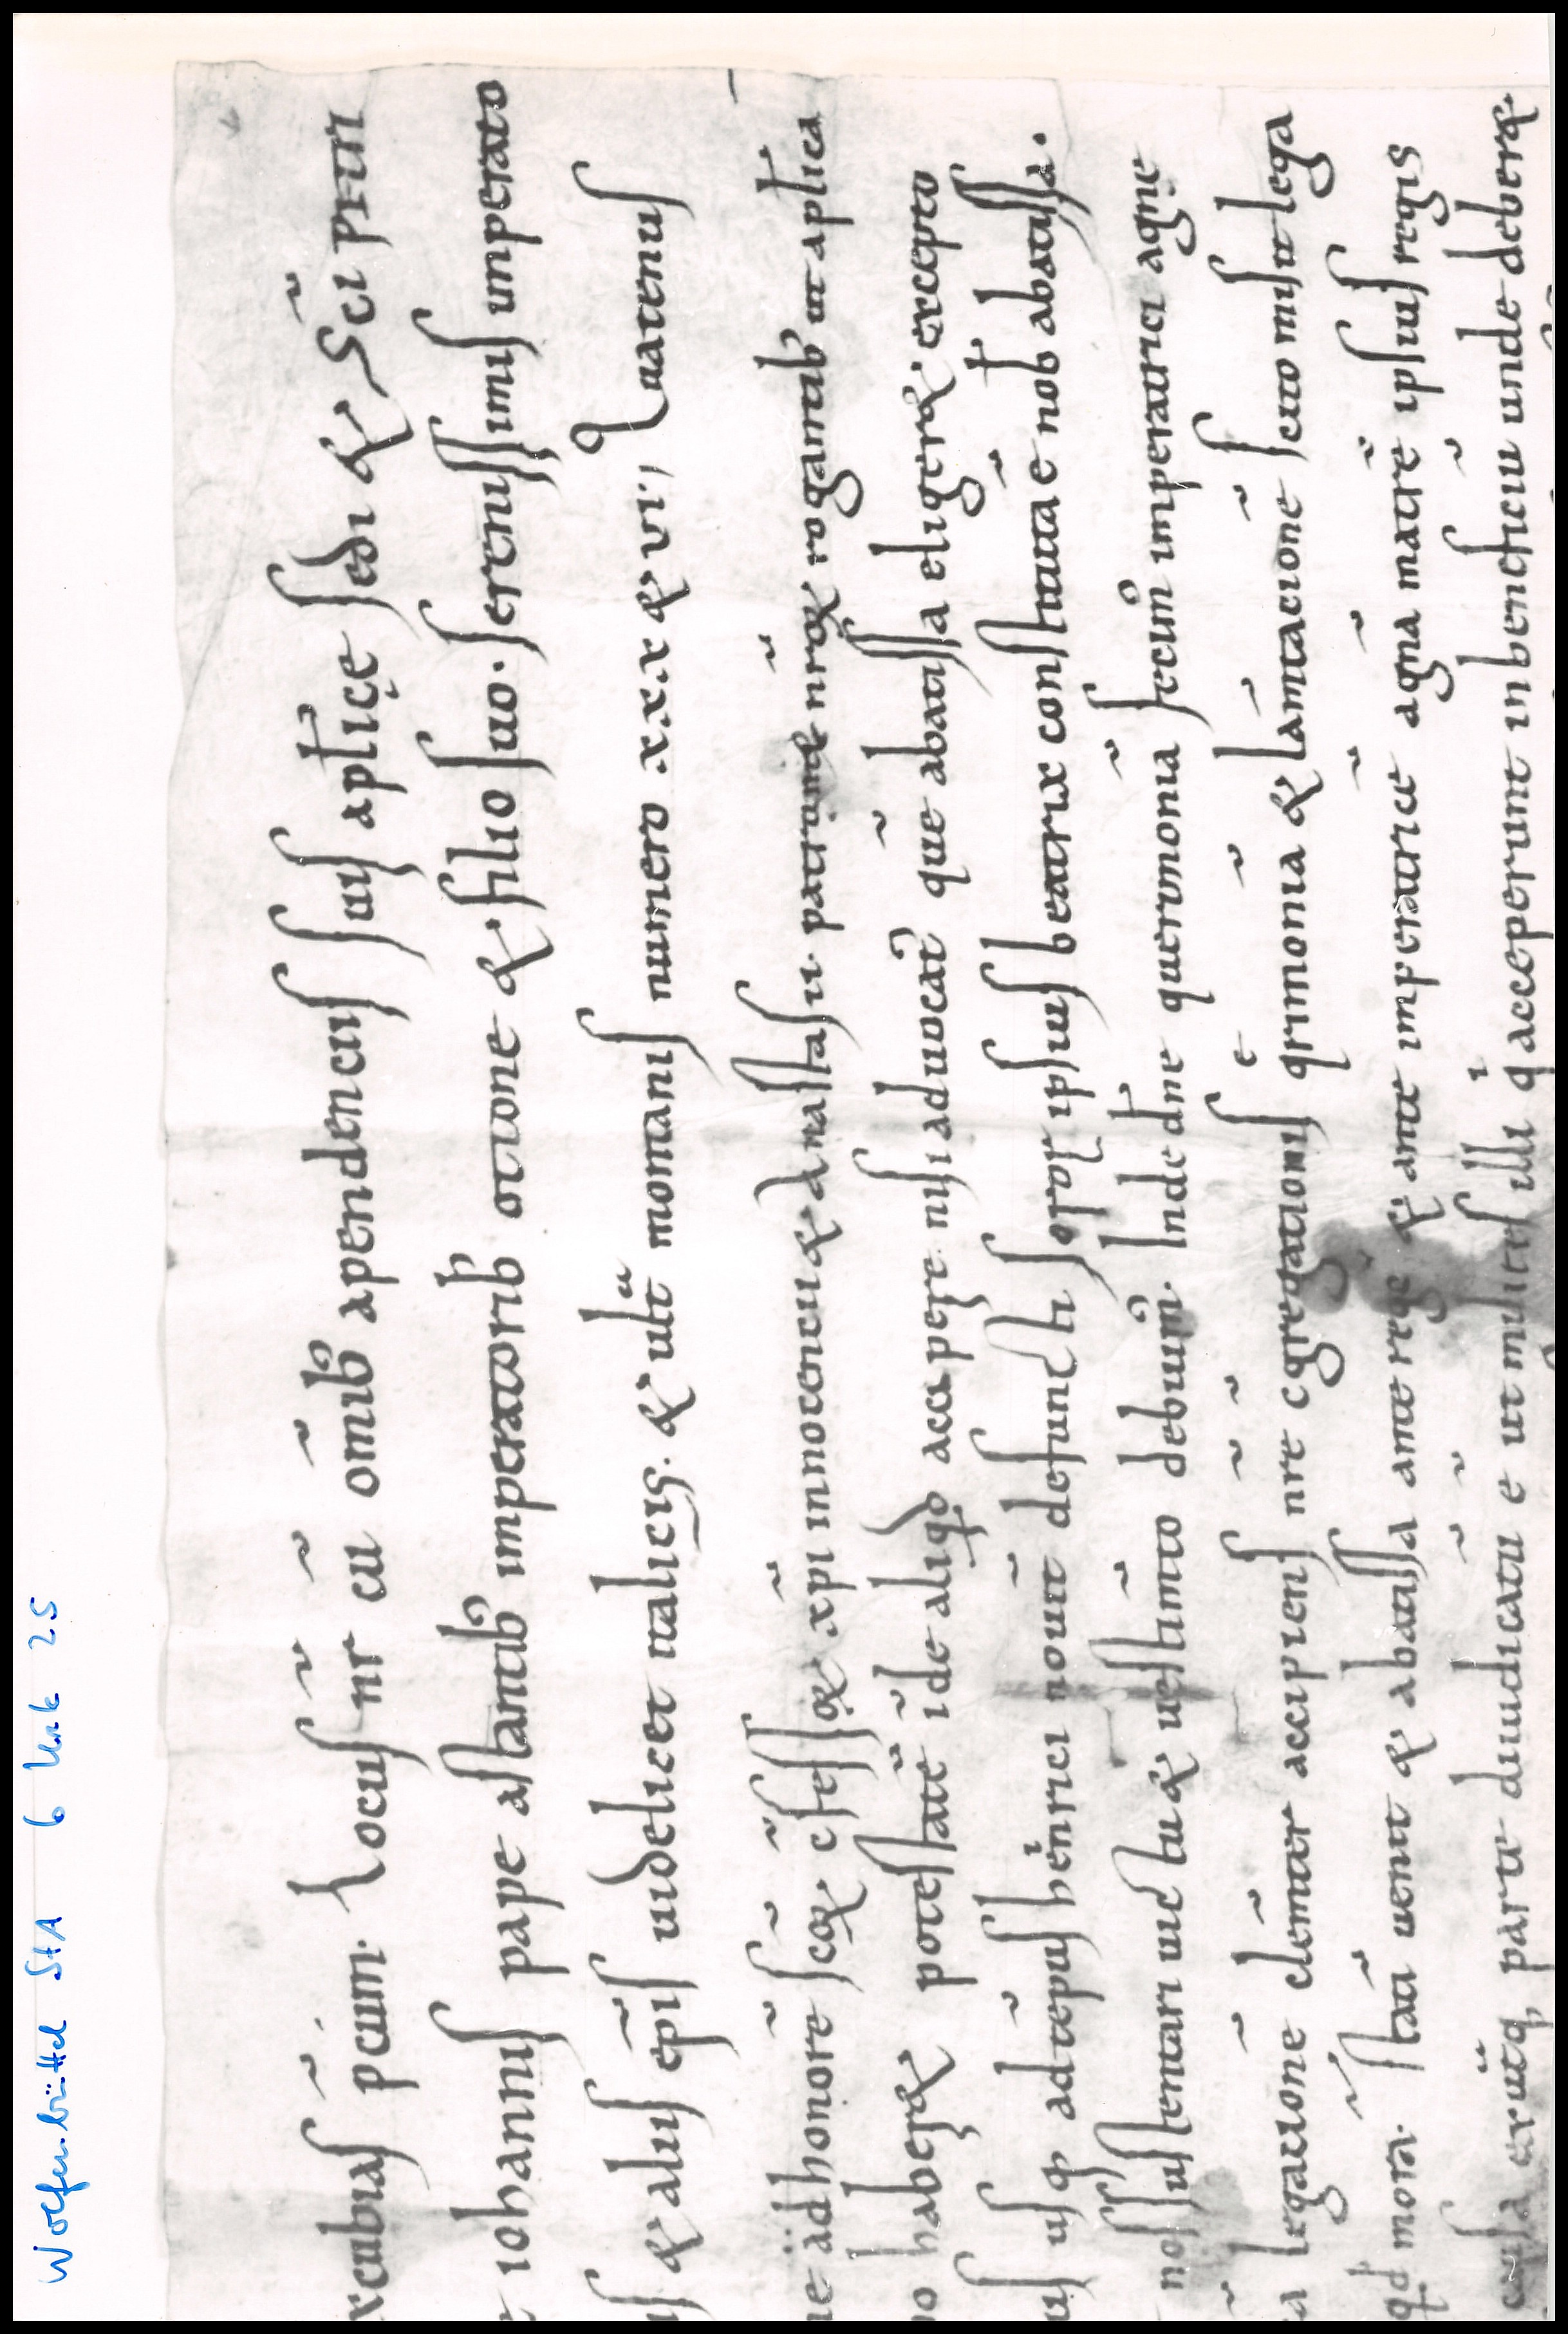 Wolfenbüttel StA 6 Urk 25
xcubias pcũm. Locus nr̃ cũ om̃ib; apendenciis suis apl̃icę sedi & Sc̃i petri
iohannis pape astantib; imperatorib; ottone & filio suo. serenissimis imperato
us & aliis ep̃is uidelicet italicis. & ult̃ montanis numero x.x.x & vi, Quatenus
ne ad honorẽ sc̃ox̨ c̃fessox̨ xp̃i innocencii & anastasii. patrum nr̃ox̨ rogantib; ut apl̃ica
uo haberet potestatẽ ĩde aliqd accipere nisi aduocat; quẽ abatissa eligeret excepto
us usq; adtẽpus henrici nouit̃ defuncti soror ipsius beatrix constituta ẽ nob̃ abatissa.
nos sustentari uictu & uestim̃to debuim;. Inde dñe querimoniã fecim; imperatrici agnę
a legacionẽ clem̃ter accipiens nr̃e c̃gregationis q̃rimoniã & lam̃tacionẽ scito misit lega
qd mora. statĩ uenit & abatissa ante regẽ & ante imperatricẽ agnã matrẽ ipsius regis
causa ex utq; parte diiudicatũ ẽ ut milites illi q̇ acceperunt in beneficiũ unde deberet